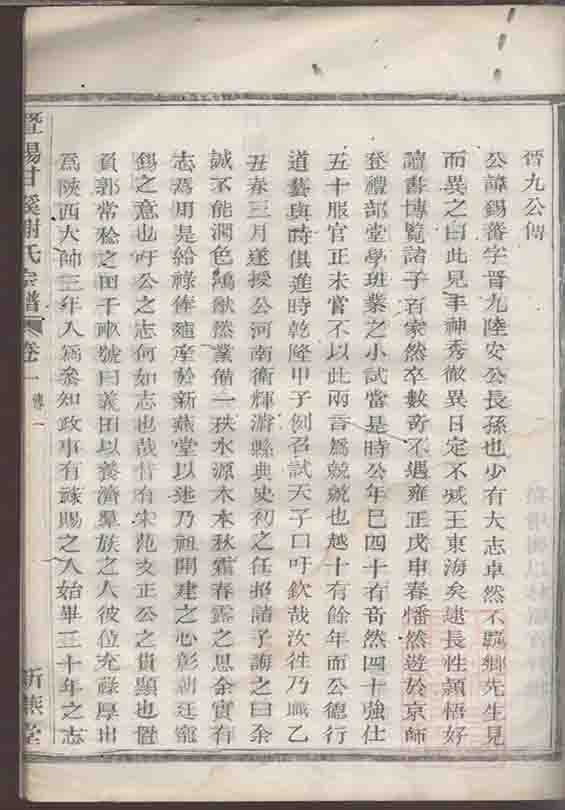 晉九公傳
公諱錫蕃字晉九陸安公長孫也少有大志卓然不羈鄉先生見
而異之曰此見丰神秀徹異日定不減王東海矣逮長性穎悟好
讀書博覽諸子百家然卒數奇不遇雍正戊申春幡然遊於京師
登禮部堂學班業之小試當是時公年已四十有奇然四十強仕
五十服官正未嘗不以此兩言為兢兢也越十有餘年而公德行
道藝與時俱進時乾隆甲子例召試天子曰吁欽哉汝往乃職乙
丑春三月遂授公河南衛輝濬縣典史初之任招諸子誨之曰余
誠不能潤色鴻猷然業備一秩水源木本秋霜春露之思余實有
志焉用是給祿俸殖產於新燕堂以建乃祖開建之心彰朝廷寵
錫之意也吁公之志何如志也哉昔有宋范文正公之貴顯也置
負郭常稔之田千畝號曰義田以養濟羣族之人彼位充祿厚出
為陝西大帥三年入為參知政事有祿賜之入始畢三十年之志
暨陽甘溪謝氏宗譜 卷一 傳 一 新燕堂